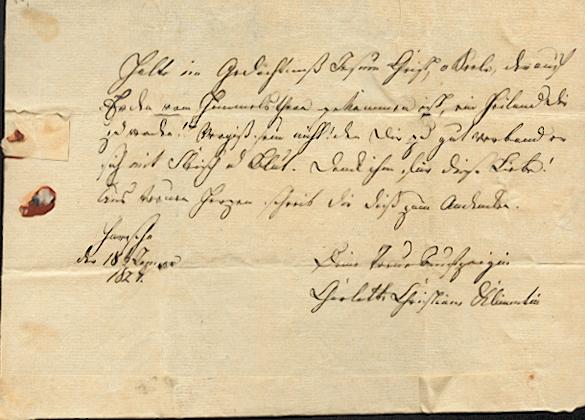 Halte im Gedächtniß Jesum Christ, o Seele, der auf
Erden vom Himmelsthron gekommen ist, ein Heiland dir
zu werden! Vergiß sein nicht! denn Dir zu gut verband er
sich mit Fleisch u Blut. Dank ihm für diese Liebe!
Aus treuen Herzen schrieb dir diß zum Andenken.
den 18
1827.
Deine Treue
Charlotte Christiana